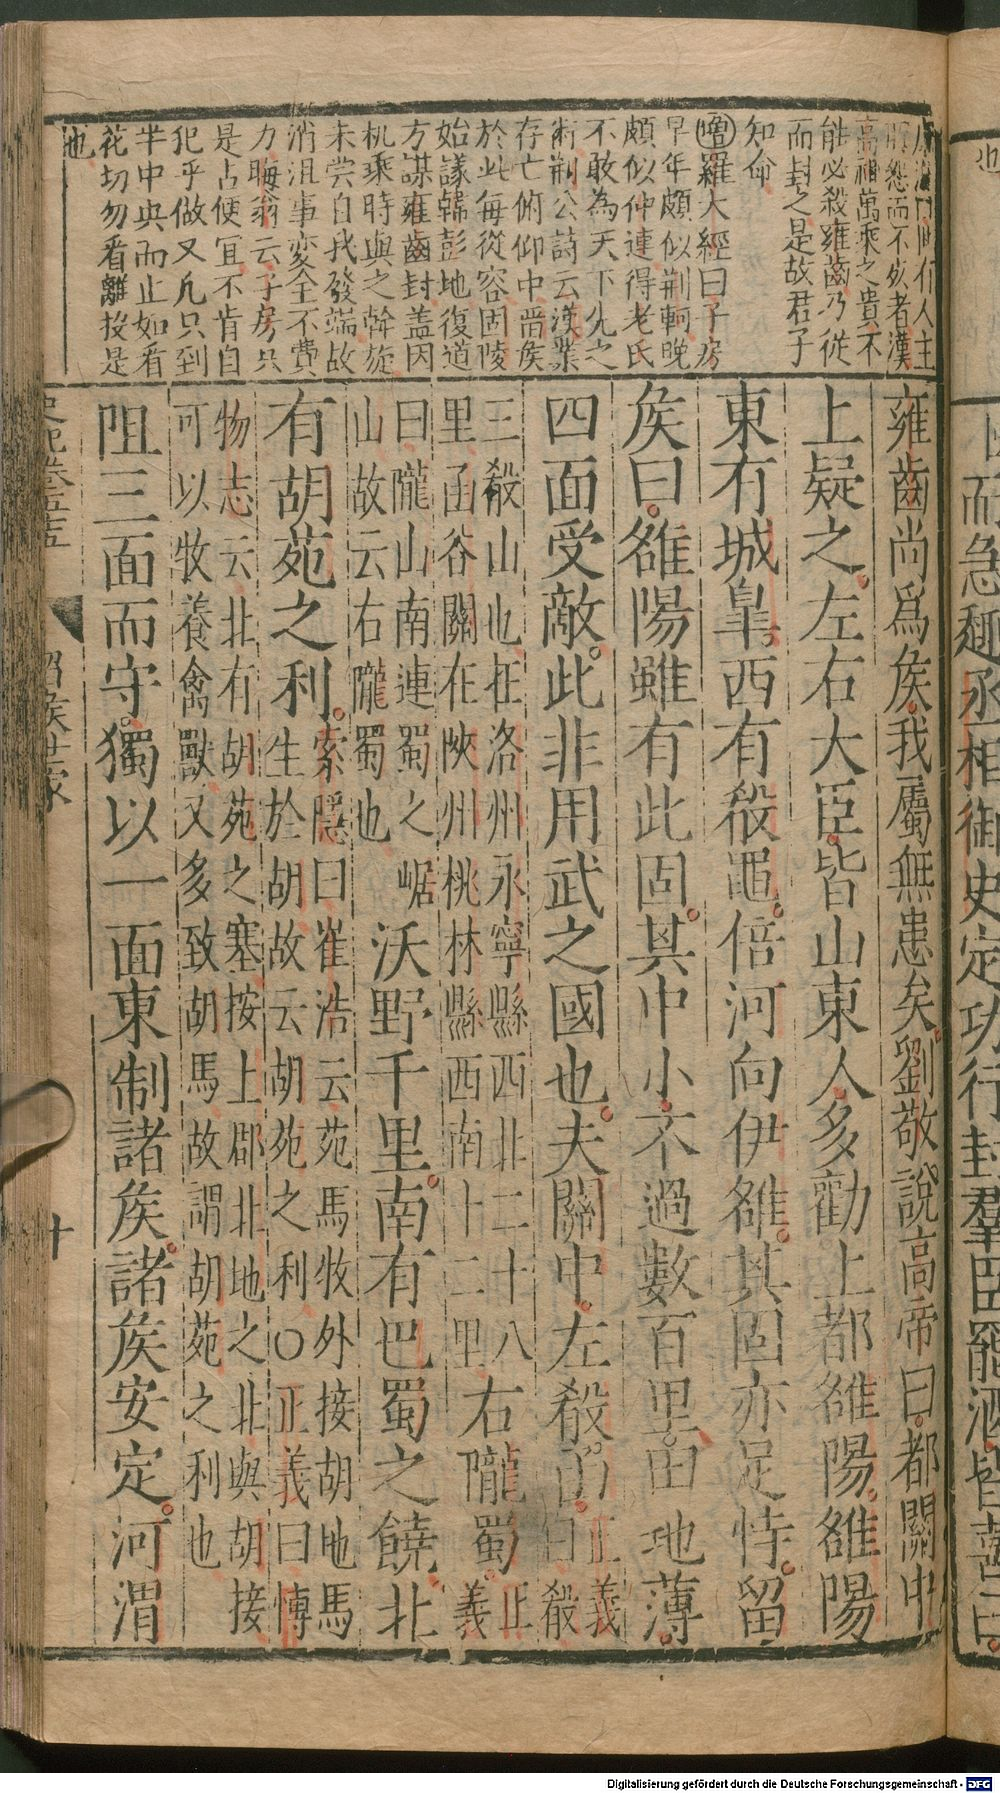 能必殺雍齒乃從
而封之是故君子
知命
嚕羅大經曰子房
早年頗似荆軻晚
頗似仲連得老氏
不敢為天下先之
術荆公詩云漢業
存亡俯仰中畱矦
於此每從容固陵
始議韓彭地復道
方謀雍齒封盖因
机乘時與之斡旋
未嘗自我發端故
消沮事変全不費
力晦翁云子房只
是占便宜不肯自
犯乎做又凢只到
半中央而止如看
花切勿看離披是
也
雍齒尚爲矦我屬無患矣劉敬說高帝曰都關中
上疑之左右大臣皆山東人多勸上都雒陽雒陽
東有城臯西有殽黽倍河向伊雒其固亦足恃留
矦曰雒陽雖有此固其中小不過數百里田地薄
四面受敵此非用武之國也夫關中左殽函正義
曰殽
三殽山也在洛州永寧縣西北二十八
里函谷關在陜州桃林縣西南十二里右隴蜀正
義
曰隴山南連蜀之岷
山故云右隴蜀也沃野千里南有巴蜀之饒北
有胡苑之利索隱曰崔浩云苑馬牧外接胡地馬
生於胡故云胡苑之利○正義曰博
物志云北有胡苑之塞按上郡北地之北與胡接
可以牧養禽獸又多致胡馬故謂胡苑之利也
阻三面而守獨以一面東制諸矦諸矦安定河渭
史記卷五十五
留矦世家
十
也
而急趣丞相御史定功行封羣臣罷酒皆喜曰
Digitalisierung gefördert durch die Deutsche Forschungsgemeinschaft - DFG